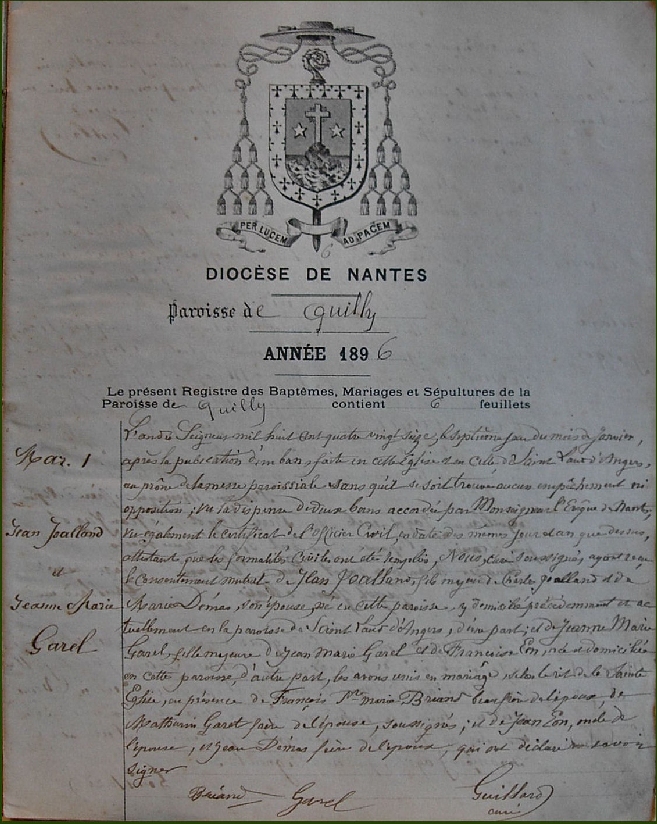 PER LUCEM AD PACEM
6
DIOCÈSE DE NANTES
Paroisse de Quilly
ANNÉE 1896
Le présent Registre des Baptêmes, Mariages et Sépultures de la
Paroisse de Quilly contient 6 feuillets
Mar. 1
Jean Joalland
et
Jeanne Marie
Garel
L'an du Seigneur mil huit cent quatre vingt seize, le septième jour du mois de Janvier,
après la publication d'un ban, faite en cette Eglise et en celle de Saint Laud d'Angers,
au prône de la messe paroissiale sans qu'il se soit trouvé aucun empêchement ni
opposition; Vu la dispense de deux bans accordée par Monseigneur l'Evêque de Nantes,
Vu également le certificat de l'Officier Civil, en date des mêmes jour et an que dessus,
attestant que les formalités civiles ont été remplies, Nous, Curé soussigné, ayant reçu
le Consentement mutuel de Jean Joalland, fils majeur de Joalland et de
Marie Démas, son épouse, né en cette paroisse, y domicilié précédemment et ac
tuellement en la paroisse de Saint Laud d'Angers, d'une part; et de Jeanne Marie
Garel, fille majeure de Jean Marie Garel et de Françoise Eon, née et domiciliée
en cette paroisse, d'autre part, les avons unis en mariage, selon le rit de la Sainte
Eglise, en présence de François Marie Briand beau frère de l'époux, de
Mathurin Garel frère de l'épouse, soussignés; et de Jean Eon, oncle de
l'épouse, et Jean Démas frère de l'époux, qui ont déclaré ne savoir
signer
Briand Garel Guillard
curé